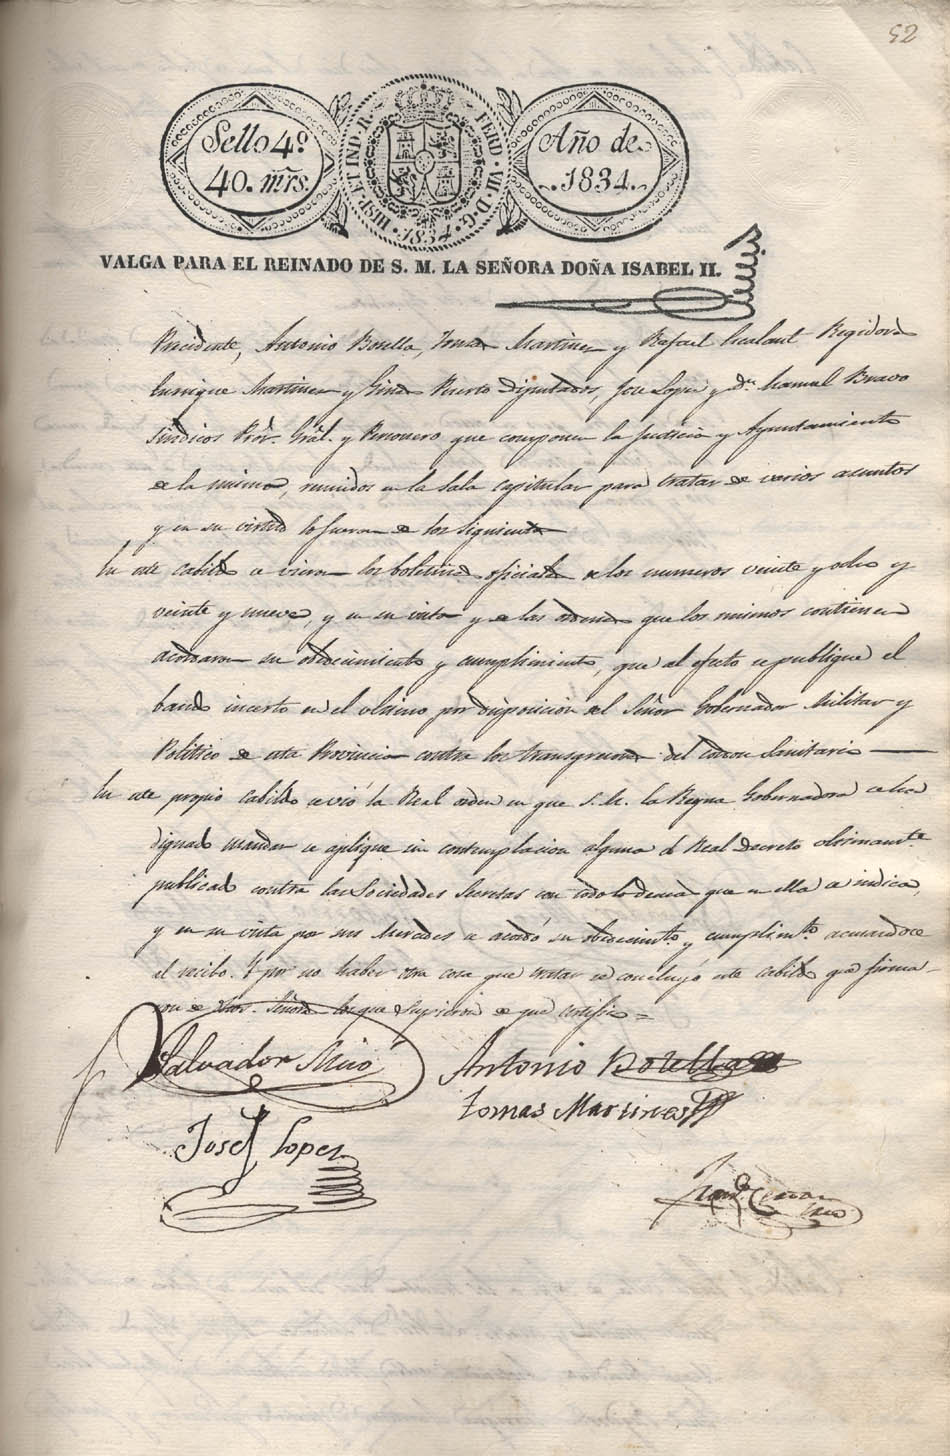 52
Sello 4º
40. mrs.
HISP. ET IND. R. FERD. VII. D. G. 1834.
Año de
1834.
VALGA PARA EL REINADO DE S. M. LA SEÑORA DOÑA ISABEL II.
Precidente, Antonio Botella, Tomas Martines y Rafael Regidores
Enrique Martines y Gines Puerto Diputados, Jose Lopez y dn. Manuel Bravo
Sindicos Pror. Gral. y Personero que componen la Justicia y Ayuntamiento
de la misma, reunidos en la Sala capitular para tratar de varios asuntos
y en su virtud lo fueron de los siguientes
En este cabildo se vieron los boletines oficiales de los numeros veinte y ocho y
veinte y nueve, y en su vista y de las ordenes que los mismos contienen
acordaron su obedecimiento y cumplimiento, que al efecto se publique el
bando incerto en el ultimo por disposicion del Señor Gobernador Militar y
Politico de esta Provincia contra los transgresores del cordon Sanitario
En este propio Cabildo se vió la Real orden en que S. M. la Reyna Gobernadora se ha
dignado mandar se aplique sin contemplacion alguna el Real Decreto ultimamte.
publicado contra las Sociedades Secretas con todo lo demas que en ella se indica,
y en su vista por sus Mercedes se acordó su obedecimto. y cumplimto. acusandose
el recibo. Y por no haber otra cosa que tratar se concluyó este cabildo que firma-
ron de dhos. Señores los que supieron de que certifico =
Salvador Micó
Antonio Botella
Tomas Martines
Josef Lopez